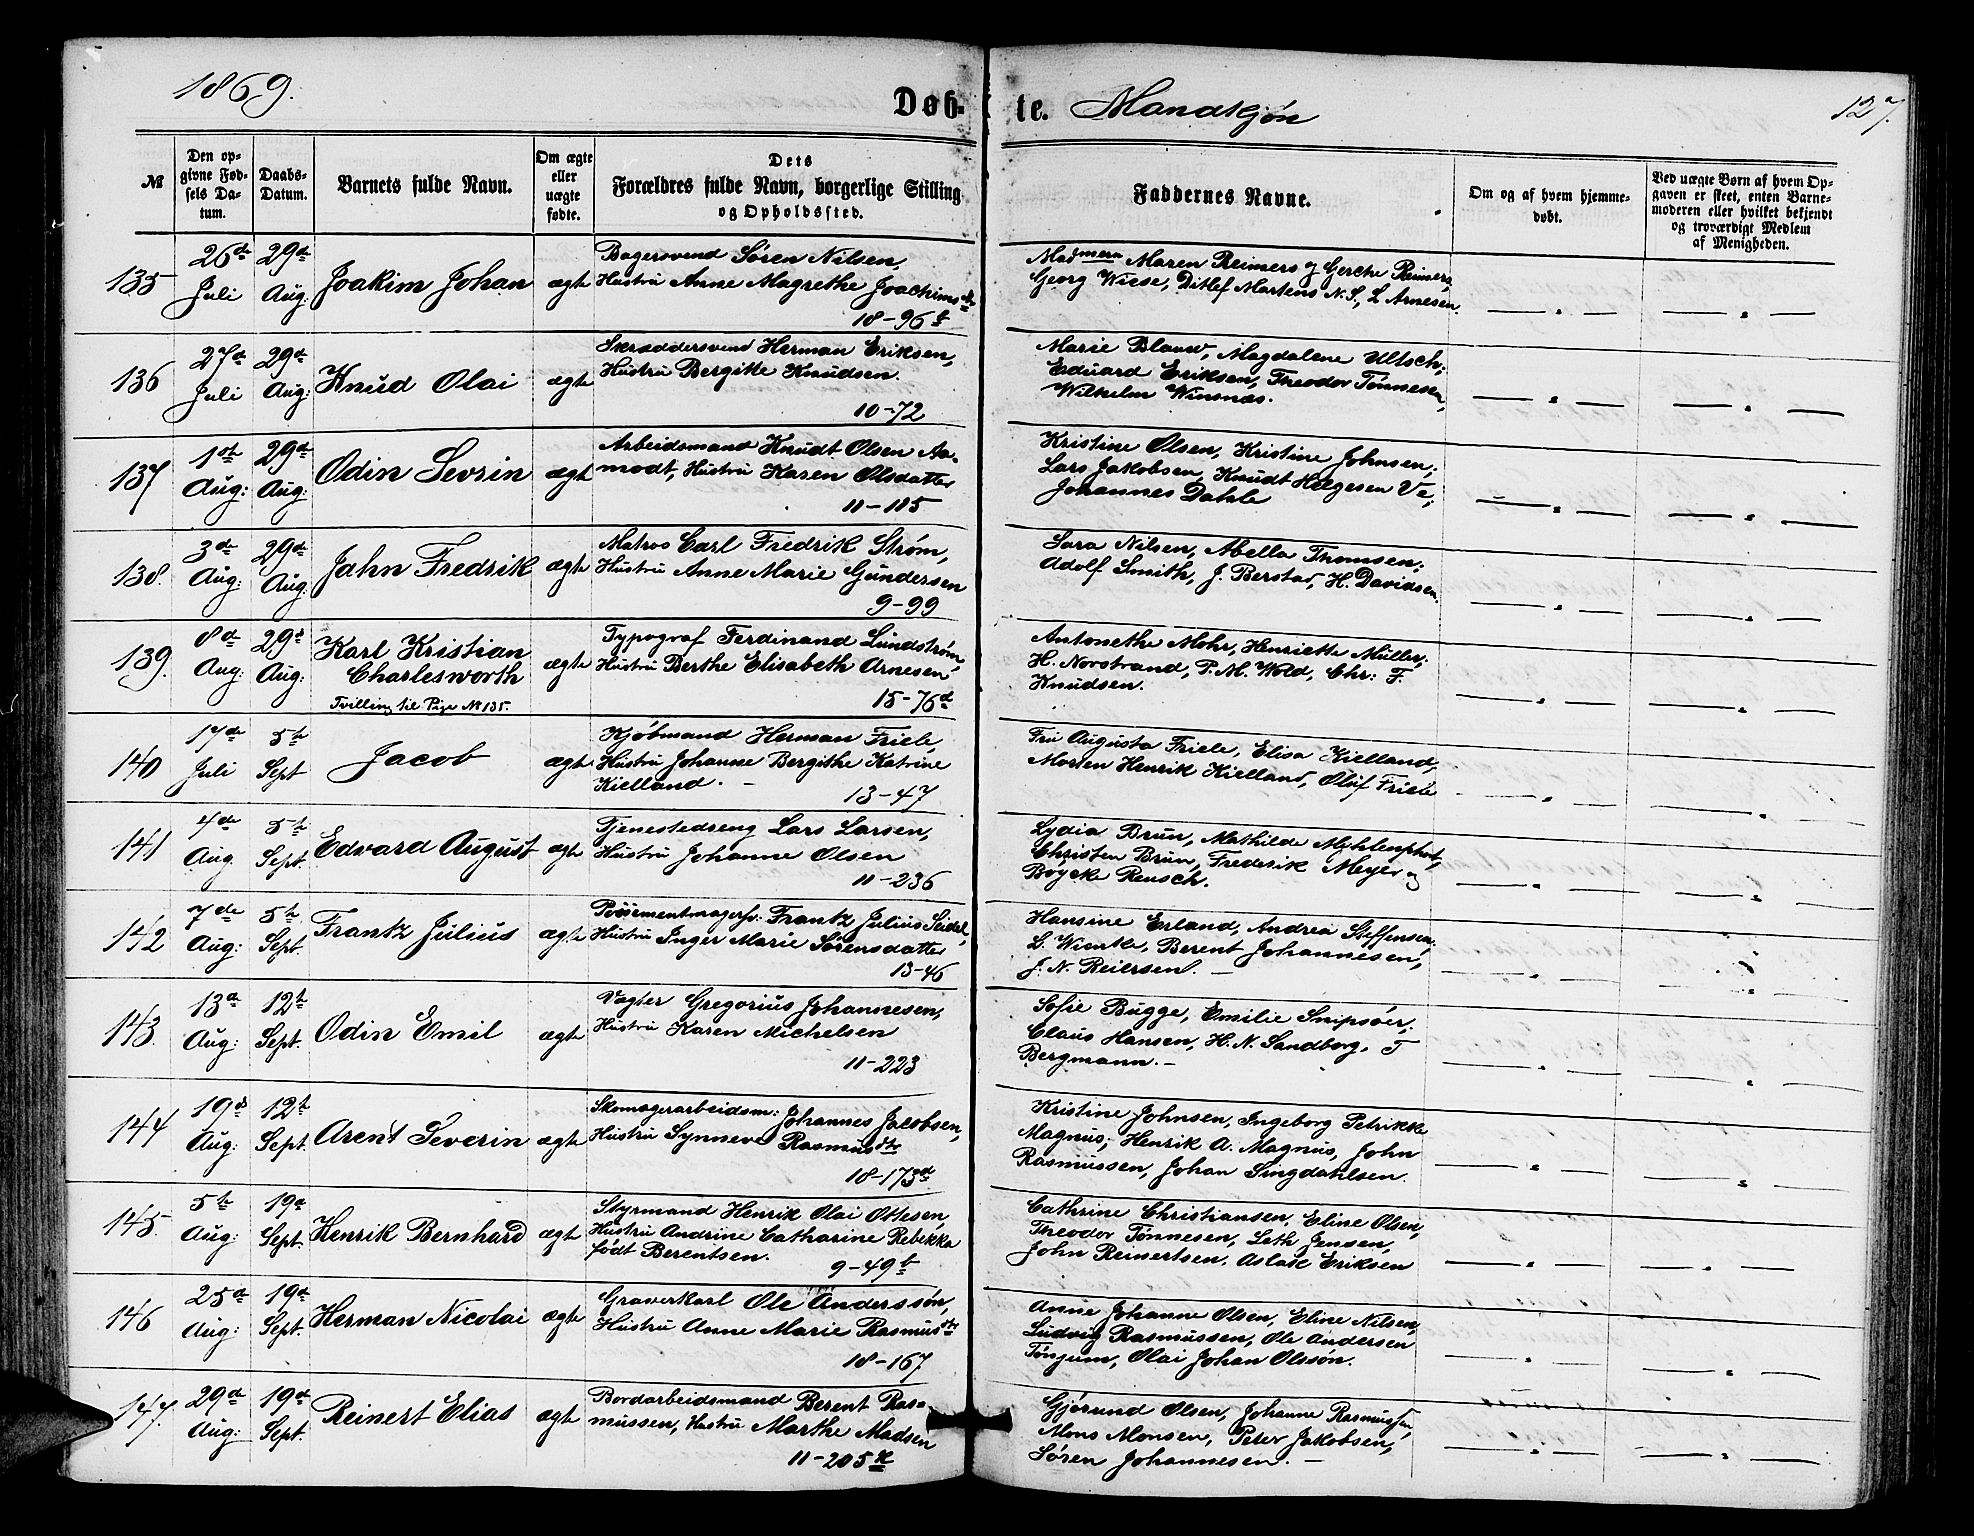 1869.
Døb-
te. Mandkjøn
127.
№
Den op-
givne Fød-
sels Da-
tum.
Daabs-
Datum.
Barnets fulde Navn.
Om ægte
eller
uægte
fødte.
Dets
Forældres fulde Navn, borgerlige Stilling
og Opholdssted.
Faddernes Navne.
Om og af hvem hjemme-
døbt.
Ved uægte Børn af hvem Op-
gaven er skeet, enten Barne-
moderen eller hvilket bekjendt
og troværdigt Medlem
af Menigheden.
135
26de
Juli
29de
Aug:
Joakim Johan
ægte
Bagersvend Sören Nilsen,
Hustru Anne Magrethe Joachimsdtr
18-96b
Madmern Maren Reimers og Gerche Reimers,
Georg Wiese, Ditlef Martens N.S., L. Arnesen.
136
27de
Juli
29de
Aug:
Knud Olai
ægte
Skræddersvend Herman Eriksen,
Hustru Bergitte Knudsen.
10-72
Marie Blauw, Magdalene Ultsch;
Eduard Eriksen, Theodor Tønnesen,
Wilhelm Winsnæs.
137
1ste
Aug:
29de
Aug:
Odin Sevrin
ægte
Arbeidsmand Knudt Olsen Aa-
modt, Hustru Karen Olsdatter
11-115
Kristine Olsen, Kristine Johnsen;
Lars Jakobsen, Knudt Helgesen Ve,
Johannes Dahle
138.
3de
Aug:
29de
Aug:
Jahn Fredrik
ægte
Matros Carl Fredrik Strøm,
Hustru Anne Marie Gundersen
9-99
Sara Nilsen, Abella Thomsen;
Adolf Smith, J. Berstad, H. Davidsen.
139.
8de
Aug:
29de
Aug:
Karl Kristian
Charlesworth
Tvilling til Pige № 135.
ægte
Typograf Ferdinand Lundstrøm,
Hustru Berthe Elisabeth Arnesen
15-76d
Antonethe Mohr, Henriette Müller;
H. Norstrand, P. M. Wold, Chr: F.
Knudsen.
140
17de
Juli
5te
Sept
Jacob
ægte
Kjøbmand Herman Friele,
Hustru Johanne Bergithe Katrine
Kielland. -
13-47
Fru Augusta Friele, Elisa Kielland,
Morten Henrik Kielland, Oluf Friele
141
4de
Aug.
5te
Sept.
Edvard August
ægte
Tjenestedreng Lars Larsen,
Hustru Johanne Olsen
11-236
Lydia Brun, Mathilde Mehlenphort,
Christen Brun, Frederik Meyer og
Boycke Rensch.
142
7de
Aug:
5te
Sept.
Frantz Julius
ægte
Possementmagersv: Frantz Julius Seidel,
Hustru Inger Marie Sörensdatter
13-46
Hansine Erland, Andrea Steffensen;
L. Wientke, Berent Johannesen,
J. N. Reiersen. -
143.
13de
Aug:
12te
Sept.
Odin Emil
ægte
Vægter Gregorius Johannesen,
Hustru Karen Michelsen
11-223
Sofie Bugge, Emilie Snipsöer;
Claus Hansen, H. N. Sandborg, T
Bergmann. -
144
19de
Aug:
12te
Sept.
Arent Severin
ægte
Skomagerarbeidsm: Johannes Jacobsen,
Hustru Synneve Rasmusdtr
18-173d
Kristine Johnsen, Ingeborg Petrikke
Magnus; Henrik A. Magnus, John
Rasmussen, Johan Singdahlsen.
145.
5te
Aug:
19de
Sept.
Henrik Bernhard
ægte
Styrmand Henrik Olai Ottesen,
Hustru Andrine Catharine Rebekka
født Berentsen.
9-49b
Cathrine Christiansen, Eline Olsen,
Theodor Tönnesen, Leth Jensen,
John Reinertsen, Aslak Eriksen
146
25de
Aug:
19de
Sept.
Herman Nicolai
ægte
Graverkarl Ole Anderssön,
Hustru Anne Marie Rasmusdtr
18-167
Anne Johanne Olsen, Eline Nilsen,
Ludvig Rasmussen, Ole Andersen
Tönjum, Olai Johan Olssön.
147.
29de
Aug:
19de
Sept.
Reinert Elias
ægte
Bordarbeidsmand Berent Ras-
mussen, Hustru Marthe Madsen
11-205k
Gjörund Olsen, Johanne Rasmussen,
Mons Monsen, Peter Jakobsen,
Sören Johannesen. -